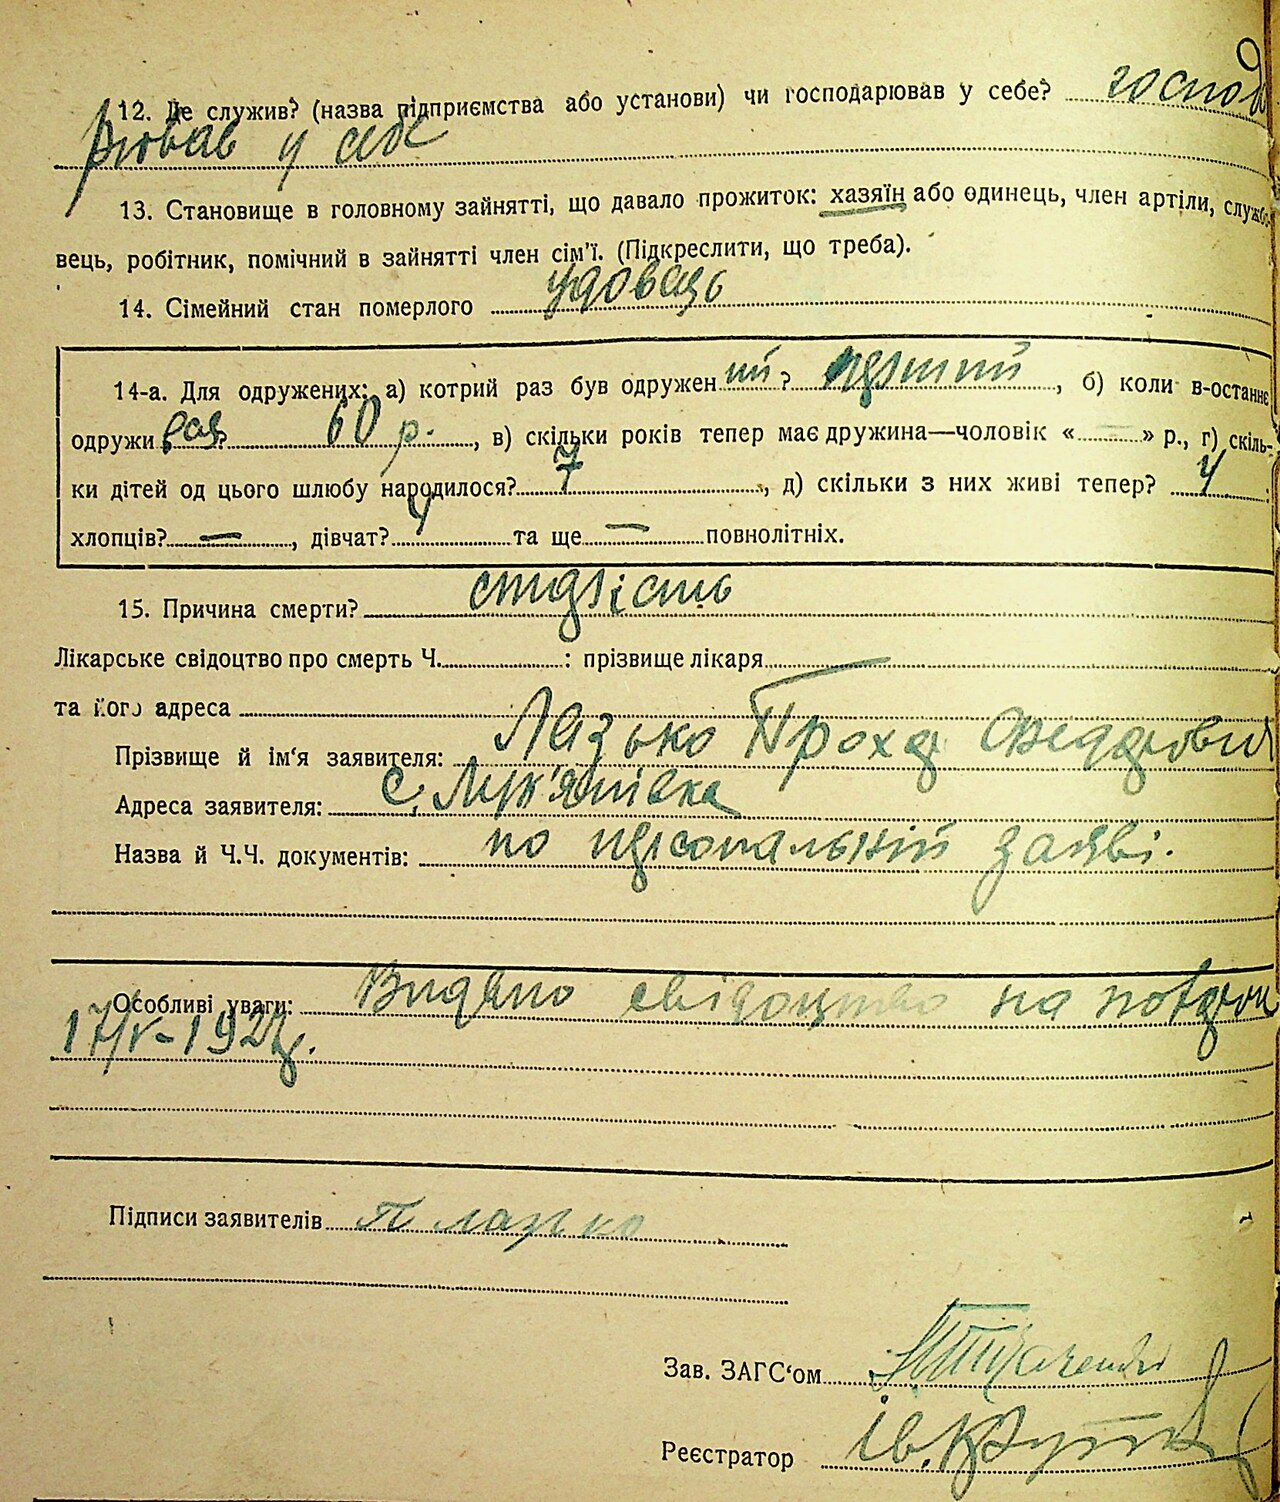 12. Де служив? (назва підприємства або установи) чи господарював у себе? господ
рював у себе
13. Становище в головному зайнятті, що давало прожиток: хазяїн або одинець, член артіли, службо-
вець, робітник, помічний в зайнятті член сім'ї. (Підкреслити, що треба).
14. Сімейний стан померлого удовець
14-а. Для одружених: а) котрий раз був одружений? перший, б) коли в-останнє
одружи 60 р., в) скільки років тепер має дружина—чоловік «—» р., г) скіль-
ки дітей од цього шлюбу народилося? 7, д) скільки з них живі тепер? 4
хлопців? —, дівчат? 4 та ще — повнолітніх.
15. Причина смерти? старість
Лікарське свідоцтво про смерть Ч. : прізвище лікаря —
та його адреса
Прізвище й ім'я заявителя: Лазько Прохор Федорович
Адреса заявителя: с. Лук'янівка
Назва й Ч.Ч. документів: по персональній заяві.
Особливі уваги: Видано свідоцтво на похорон
17/V-192
Підписи заявителів П Лазько
Зав. ЗАГС'ом Ткаченко
Реєстратор Ів.